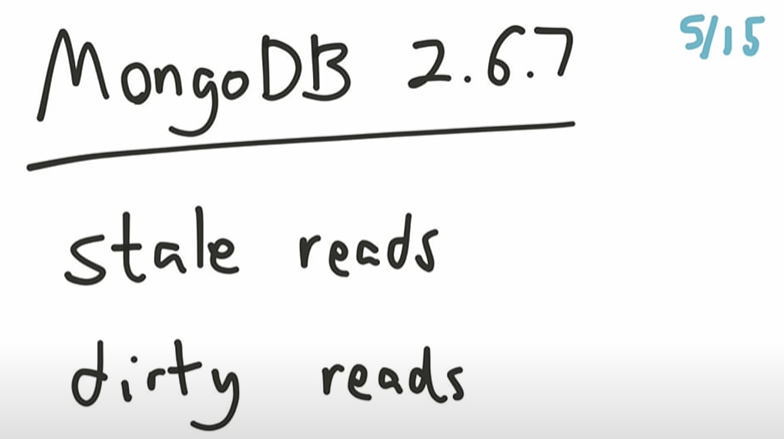 MongoDB 2.6.7 5/15
stale reads
dirty reads